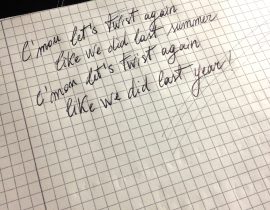 C'mon let's twist again
like we did last summer
C'mon let's twist again
like we did last year!